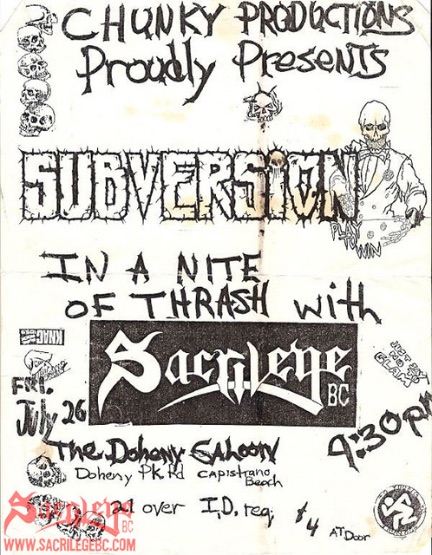 CHUNKY PRODUCTIONS
Proudly Presents
SUBVERSION
PLAY
WIN
IN A NITE
OF THRASH with
Sacrilege
BC
KNAC
Fri.
July 26
9:30pm
The Doheny Saloon
Doheny Pk. Rd Capistrano
Beach
21 over I.D. req. $4 AT Door
Sacrilege
BC
WWW.SACRILEGEBC.COM